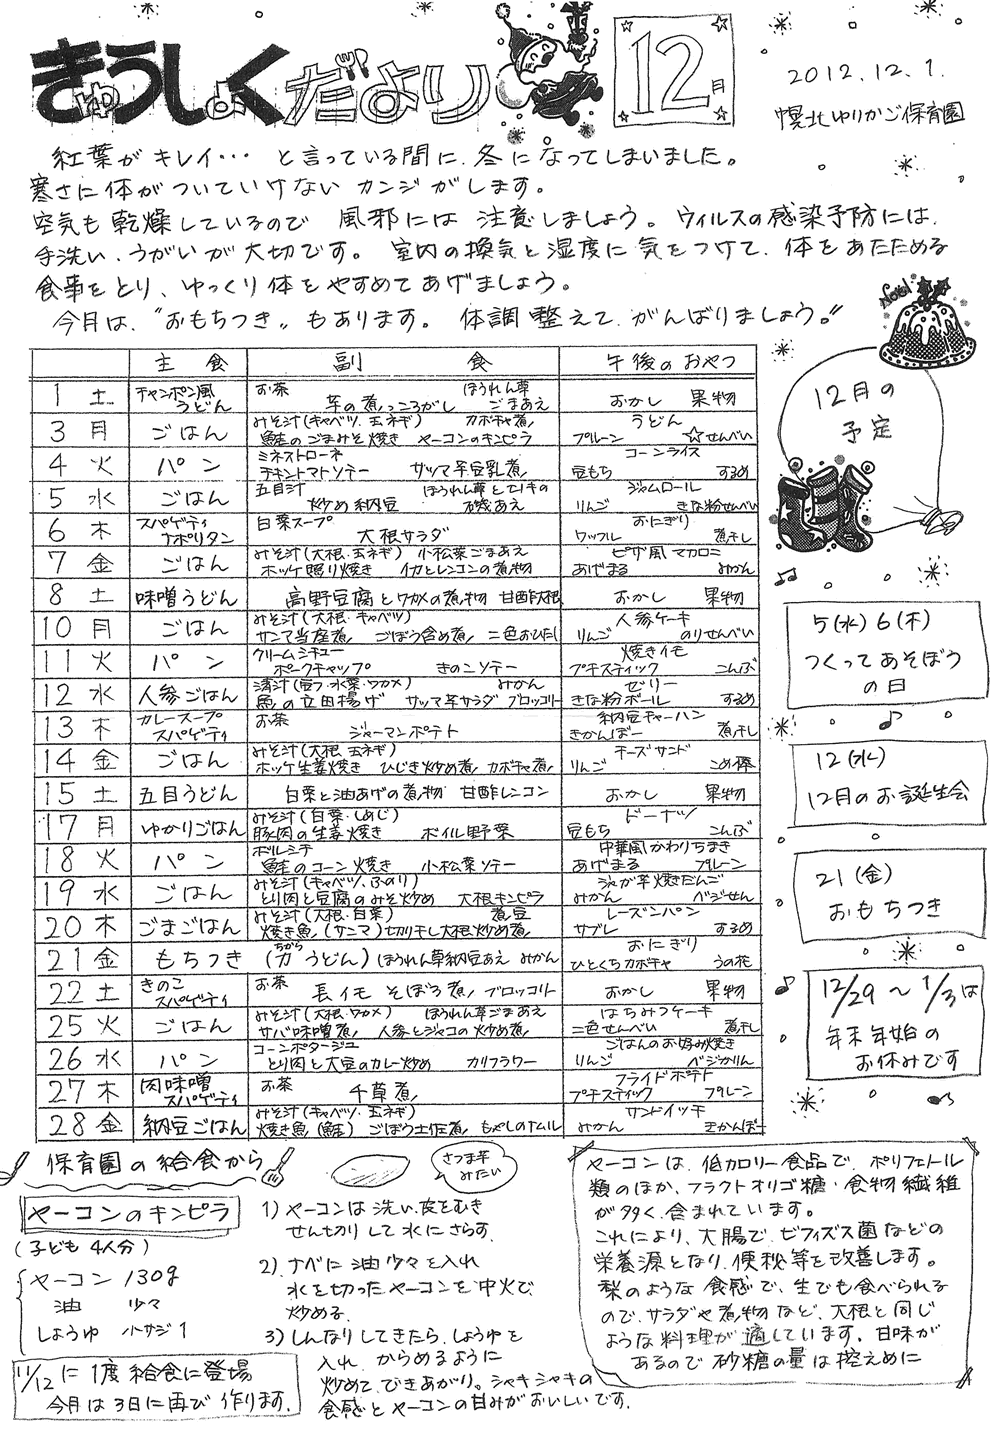 きゅうしょくだより
12月
2012.12.1.
幌北ゆりかご保育園
紅葉がキレイ… と言っている間に、冬になってしまいました。
寒さに体がついていけない カンジがします。
空気も乾燥しているので 風邪には 注意しましょう。ウィルスの感染予防には、
手洗い、うがいが大切です。 室内の換気と湿度に気をつけて、体をあたためる
食事をとり、ゆっくり体をやすめてあげましょう。
今月は、"おもちつき"もあります。 体調整えて、がんばりましょう。
主食 副食 午後のおやつ
1 土 チャンポン風うどん お茶 芋の煮っころがし ほうれん草ごまあえ おかし 果物
3 月 ごはん みそ汁(キャベツ、玉ネギ) カボチャ煮 鮭のごまみそ焼き ヤーコンのキンピラ うどん プルーン ☆せんべい
4 火 パン ミネストローネ チキントマトソテー サツマ芋豆乳煮 コーンライス 豆もち するめ
5 水 ごはん 五目汁 炒め納豆 ほうれん草とエノキの磯あえ ジャムロール りんご きな粉せんべい
6 木 スパゲティナポリタン 白菜スープ 大根サラダ おにぎり ワッフル 煮干し
7 金 ごはん みそ汁(大根・玉ネギ) 小松菜ごまあえ ホッケ照り焼き イカとレンコンの煮物 ピザ風マカロニ あげまる みかん
8 土 味噌うどん 高野豆腐とワカメの煮物 甘酢大根 おかし 果物
10 月 ごはん みそ汁(大根・キャベツ) サンマ当座煮 ごぼう含め煮 二色おひたし 人参ケーキ りんご のりせんべい
11 火 パン クリームシチュー ポークチャップ きのこソテー 焼きイモ プチスティック こんぶ
12 水 人参ごはん 清汁(豆フ・水菜・ワカメ) みかん 魚の立田揚げ サツマ芋サラダ ブロッコリー ゼリー きな粉ボール するめ
13 木 カレースープスパゲティ お茶 ジャーマンポテト 納豆チャーハン きかんぼー 煮干し
14 金 ごはん みそ汁(大根、玉ネギ) ホッケ生姜焼き ひじき炒め煮 カボチャ煮 チーズサンド りんご こめ棒
15 土 五目うどん 白菜と油あげの煮物 甘酢レンコン おかし 果物
17 月 ゆかりごはん みそ汁(白菜・しめじ) 豚肉の生姜焼き ボイル野菜 ドーナツ 豆もち こんぶ
18 火 パン ボルシチ 鮭のコーン焼き 小松菜ソテー 中華風かわりちまき あげまる プルーン
19 水 ごはん みそ汁(キャベツ、ふのり) とり肉と豆腐のみそ炒め 大根キンピラ ジャガ芋焼きだんご みかん ベジせん
20 木 ごまごはん みそ汁(大根・白菜) 煮豆 焼き魚(サンマ)切り干し大根炒め煮 レーズンパン サブレ するめ
21 金 もちつき (力うどん) ちから ほうれん草納豆あえ みかん おにぎり ひとくちカボチャ うの花
22 土 きのこスパゲティ お茶 長イモそぼろ煮 ブロッコリー おかし 果物
25 火 ごはん みそ汁(大根、ワカメ) ほうれん草ごまあえ サバ味噌煮 人参とジャコの炒め煮 はちみつケーキ 二色せんべい 煮干し
26 水 パン コーンポタージュ とり肉と大豆のカレー炒め カリフラワー ごはんのお好み焼き りんご ベジかりん
27 木 肉味噌スパゲティ お茶 千草煮 フライドポテト プチスティック プルーン
28 金 納豆ごはん みそ汁(キャベツ・玉ネギ) 焼き魚(鮭) ごぼう土佐煮 もやしのナムル サンドイッチ みかん きかんぼー
Noël
12月の
予定
5(水)6(木)
つくってあそぼう
の日
12(水)
12月のお誕生会
21(金)
おもちつき
12/29〜1/3は
年末年始の
お休みです
保育園の給食から
ヤーコンのキンピラ
(子ども4人分)
ヤーコン 130g
油 少々
しょうゆ 小サジ1
11/12に1度給食に登場
今月は3日に再び作ります。
さつま芋
みたい
1) ヤーコンは洗い、皮をむき
せん切りして水にさらす。
2) ナベに油少々を入れ
水を切ったヤーコンを中火で
炒める
3) しんなりしてきたら、しょうゆを
入れ、からめるように
炒めて、できあがり。シャキシャキの
食感とヤーコンの甘みがおいしいです。
ヤーコンは、低カロリー食品で、ポリフェノール
類のほか、フラクトオリゴ糖・食物繊維
が多く含まれています。
これにより、大腸で、ビフィズス菌などの
栄養源となり、便秘等を改善します。
梨のような食感で、生でも食べられる
ので、サラダや煮物など、大根と同じ
ような料理が適しています。甘味が
あるので砂糖の量は控えめに